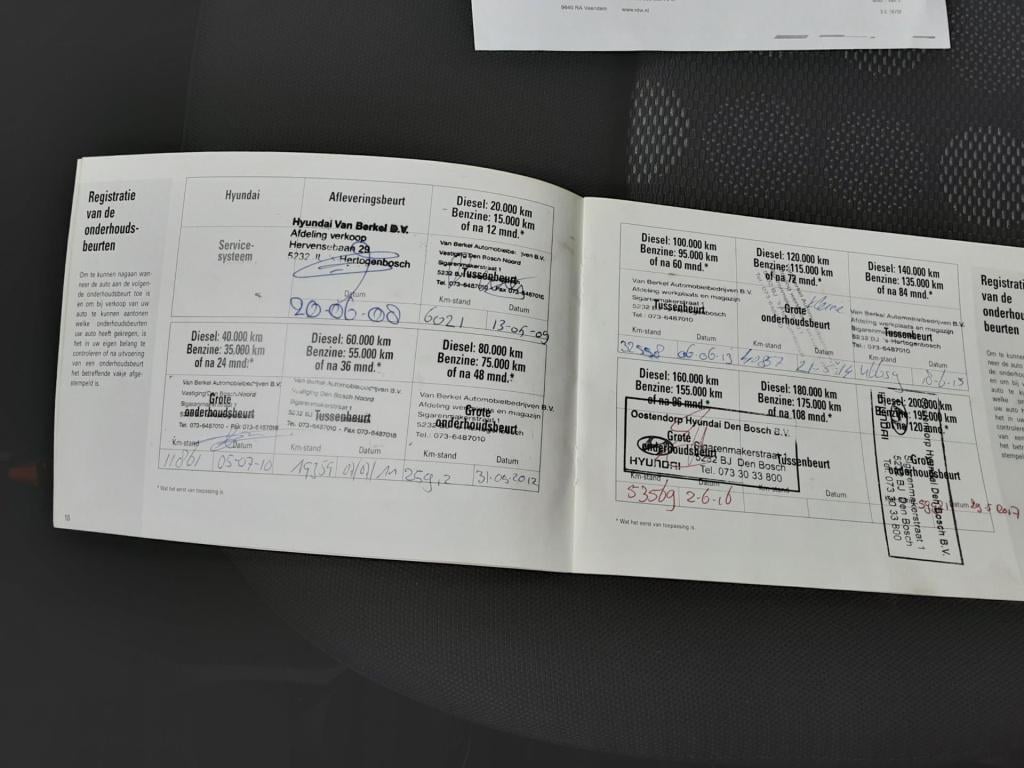 9640 RA Veendam www.rdw.nl
Registratie
van de
onderhouds-
beurten
Om te kunnen nagaan wan-
neer de auto aan de volgen-
de onderhoudsbeurt toe is
en om bij verkoop van uw
auto te kunnen aantonen
welke onderhoudsbeurten
uw auto heeft gekregen, is
het in uw eigen belang te
controleren of na uitvoering
van een onderhoudsbeurt
het betreffende vakje afge-
stempeld is.
10
Hyundai
Service-
systeem
Afleveringsbeurt
Hyundai Van Berkel B.V.
Afdeling verkoop
Hervensebaan 29
5232 Hertogenbosch
Datum
20-06-08
Diesel: 20.000 km
Benzine: 15.000 km
of na 12 mnd.*
Van Berkel Automobielbedrijven B.V.
Vestiging Den Bosch Noord
Sigarenmakerstraat 1
5232 BJ
Tussenbeurt
Tel. 073-6487010 Fax 073-6487016
Km-stand Datum
6021 13-05-09
Diesel: 40.000 km
Benzine: 35.000 km
of na 24 mnd.*
Van Berkel Automobielbedrijven B.V.
Vestiging Den Bosch Noord
Grote
onderhoudsbeurt
Tel. 073-6487010 - Fax 073-648
Km-stand Datum
11861 05-07-10
Diesel: 60.000 km
Benzine: 55.000 km
of na 36 mnd.*
Van Berkel Automobielbedrijven B.V.
Vestiging Den Bosch Noord
Sigarenmakerstraat 1
Tussenbeurt
Tel. 073-6487010 - Fax 073-6487016
Km-stand Datum
19359
Diesel: 80.000 km
Benzine: 75.000 km
of na 48 mnd.*
Van Berkel Automobielbedrijven B.V.
Afdeling werkplaats en magazijn
Sigarenmakerstraat
Grote
onderhoudsbeurt
5232 BJ
Tel.: 073-6487010
Km-stand Datum
31-05-2012
* Wat het eerst van toepassing is.
Diesel: 100.000 km
Benzine: 95.000 km
of na 60 mnd.*
Van Berkel Automobielbedrijven B.V.
Afdeling werkplaats en magazijn
Tussenbeurt
Tel.: 073-6487010
Km-stand Datum
32558 06-06-13
Diesel: 120.000 km
Benzine: 115.000 km
of na 72 mnd.*
Grote
onderhoudsbeurt
Km-stand Datum
21-5-14
Diesel: 140.000 km
Benzine: 135.000 km
of na 84 mnd.*
Van Berkel Automobielbedrijven B.V.
Afdeling werkplaats en magazijn
Tussenbeurt
5232 BJ 's-Hertogenbosch
Tel.: 073-6487010
Km-stand Datum
Diesel: 160.000 km
Benzine: 155.000 km
of na 96 mnd.*
Oostendorp Hyundai Den Bosch B.V.
Grote
Sigarenmakerstraat 1
5232 BJ Den Bosch
HYUNDAI
Tel. 073 30 33 800
Km-stand
53569 2-6-16
Diesel: 180.000 km
Benzine: 175.000 km
of na 108 mnd.*
Tussenbeurt
Km-stand Datum
Diesel: 200.000 km
Benzine: 195.000 km
of na 120 mnd.*
Grote
onderhoudsbeurt
Hyundai Den Bosch B.V.
Sigarenmakerstraat 1
5232 BJ Den Bosch
Tel. 073 30 33 800
HYUNDAI
Datum
2017
* Wat het eerst van toepassing is.
Registrati
van de
onderhou
beurten